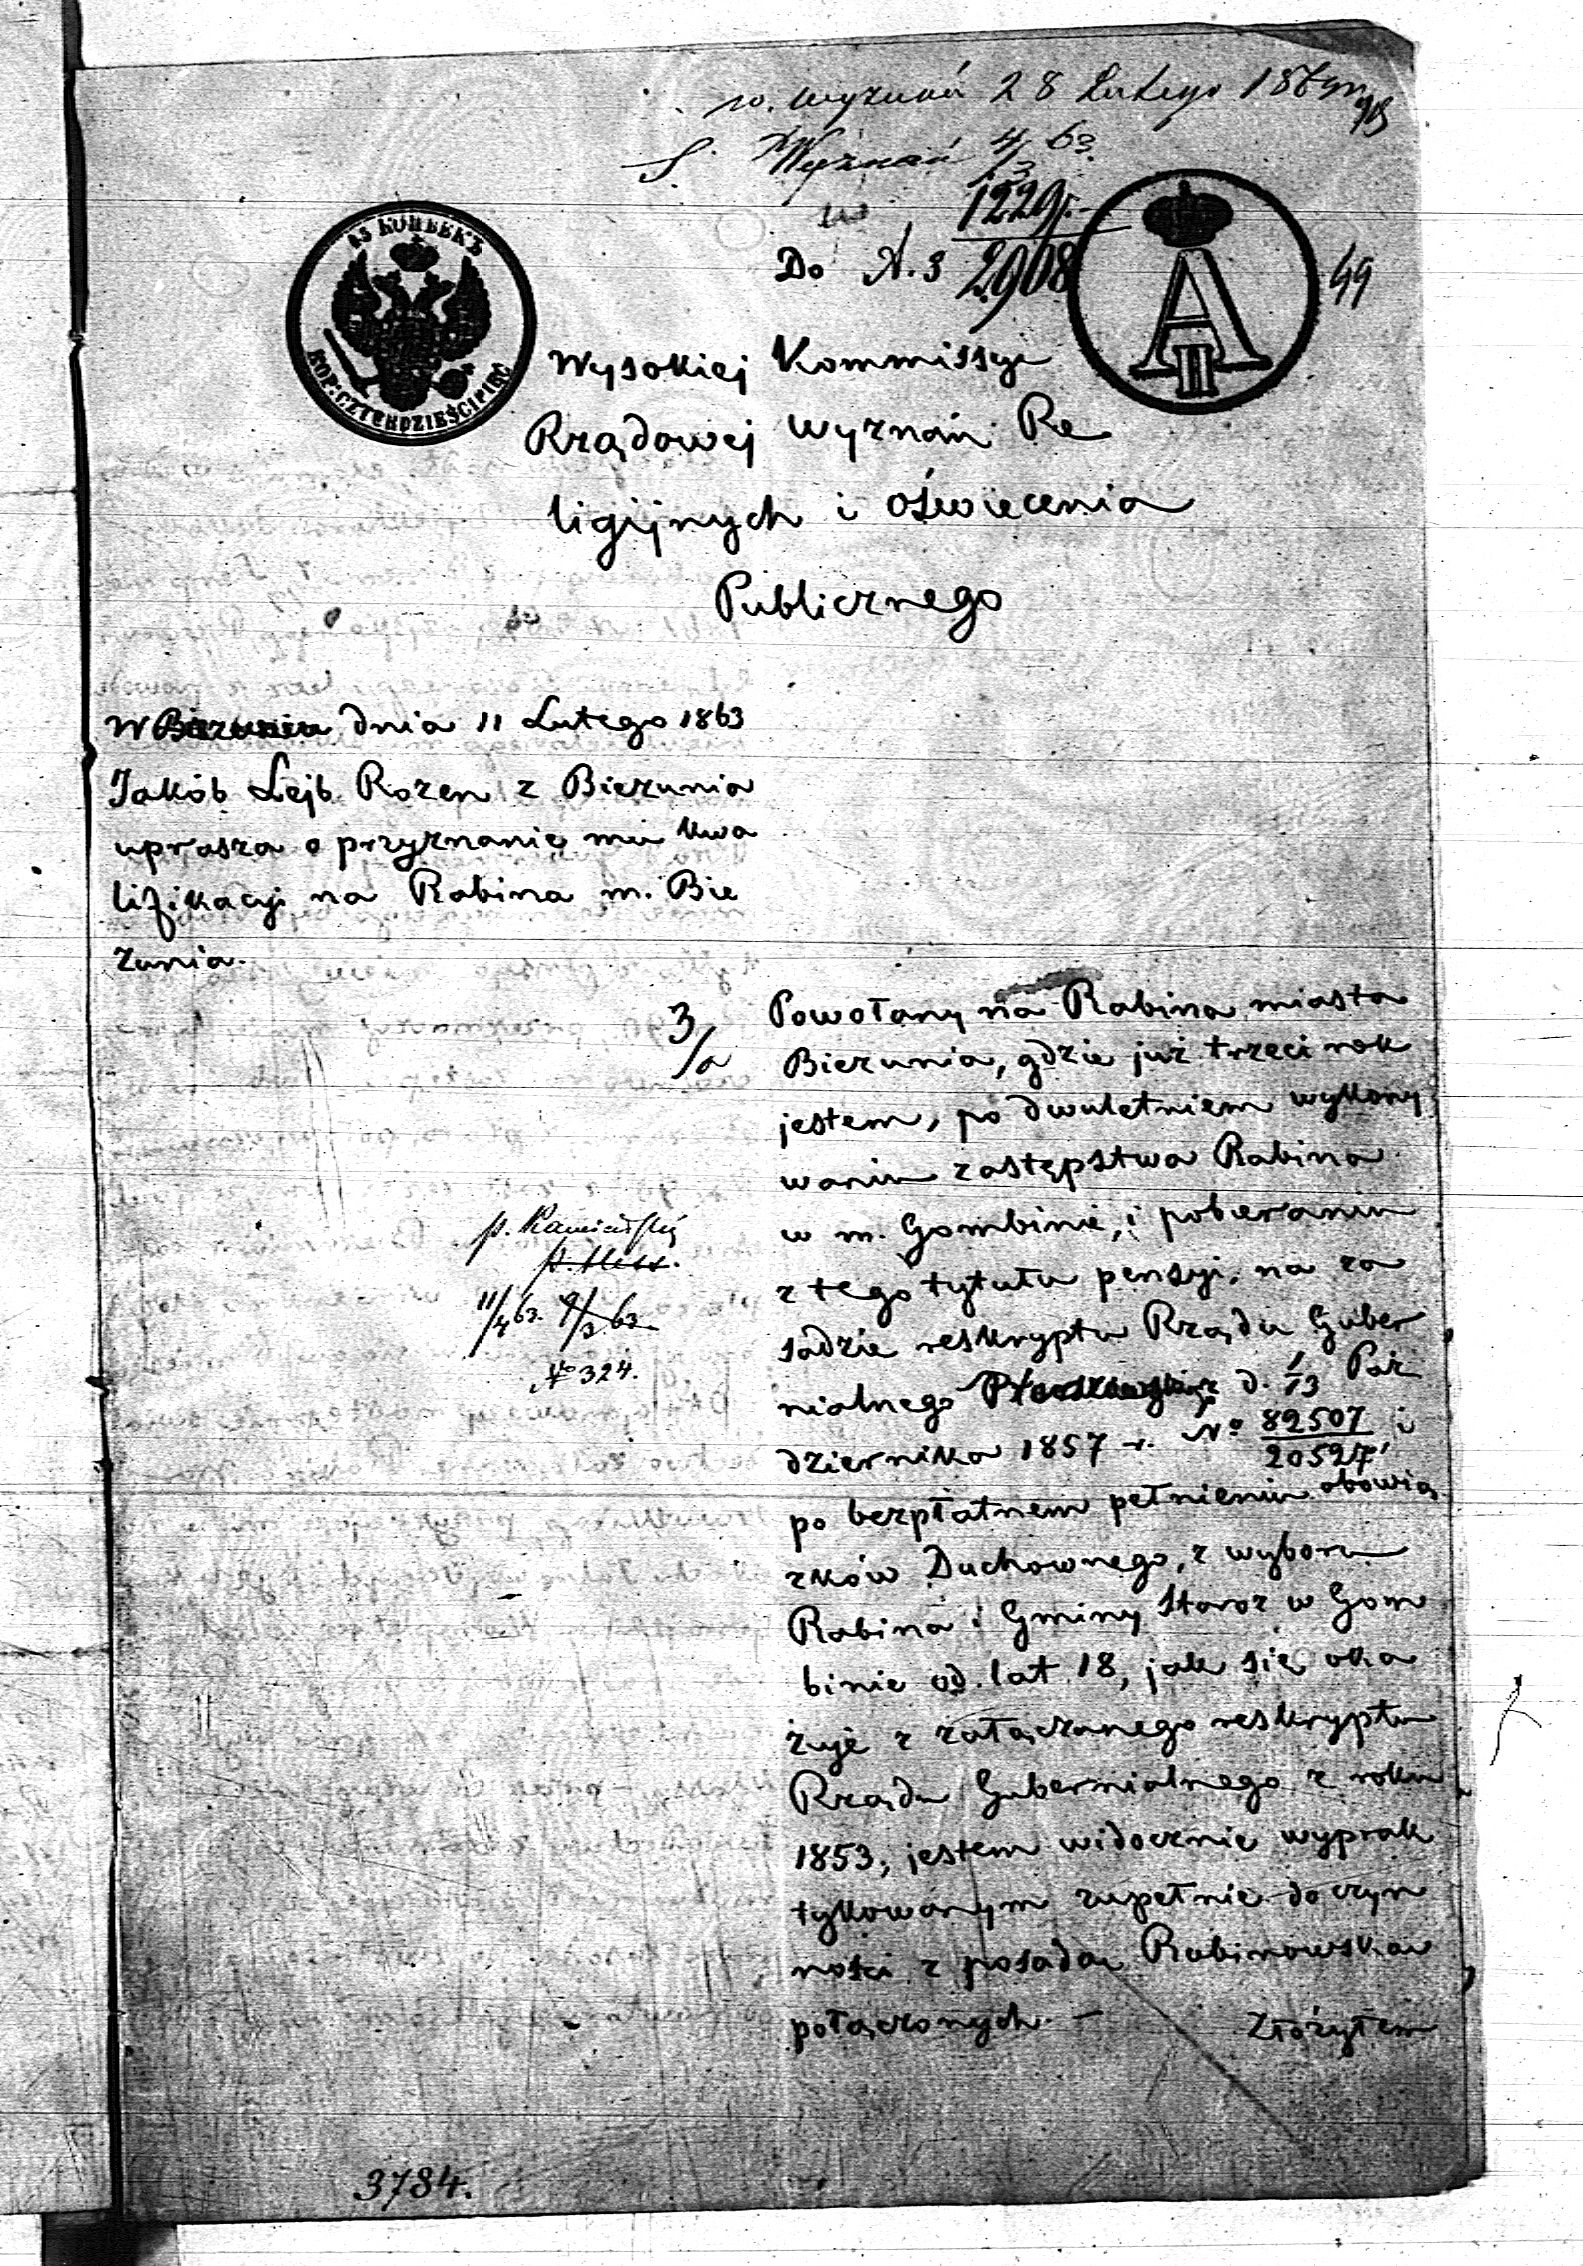 w. Wyznań 28 Lutego 1863
S. Wyznań 4/3 63.
1229
Do A. 3 2908
49
45 КОПѢЕКЪ
KOP: CZTERDZIEŚCI PIĘĆ
A II
Wysokiej Kommissyi
Rządowej Wyznań Re
ligijnych i Oświecenia
Publicznego
W Bieżuniu dnia 11 Lutego 1863
Jakób Lejb Rozen z Bieżunia
uprasza o przyznanie mu kwa
lifikacyi na Rabina m. Bie
żunia.
3/a
Powołany na Rabina miasta
Bieżunia, gdzie już trzeci rok
jestem, po dwuletniem wykony
waniu zastępstwa Rabina
w m. Gombinie, i pobieraniu
z tego tytułu pensyi, na za
sadzie reskryptu Rządu Guber
nialnego Płockiego d. 1/13 Paź
dziernika 1857 r. No 82507/20527 i
po bezpłatnem pełnieniu obowią
zków Duchownego, z wyboru
Rabina i Gminy Staroz w Gom
binie od lat 18, jak się oka
zuje z załączonego reskryptu
Rządu Gubernialnego z roku
1853, jestem widocznie wyprak
tykowanym zupełnie do czyn
ności z posadą Rabinowską
połączonych. –
Złożyłem
p. Kamiński
11/4 63. 9/3 63
No 324.
3784.